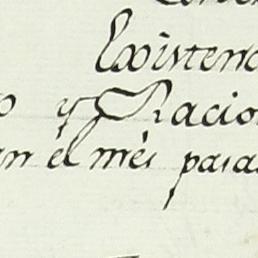 Existenc
o y Racion
an el més pasa